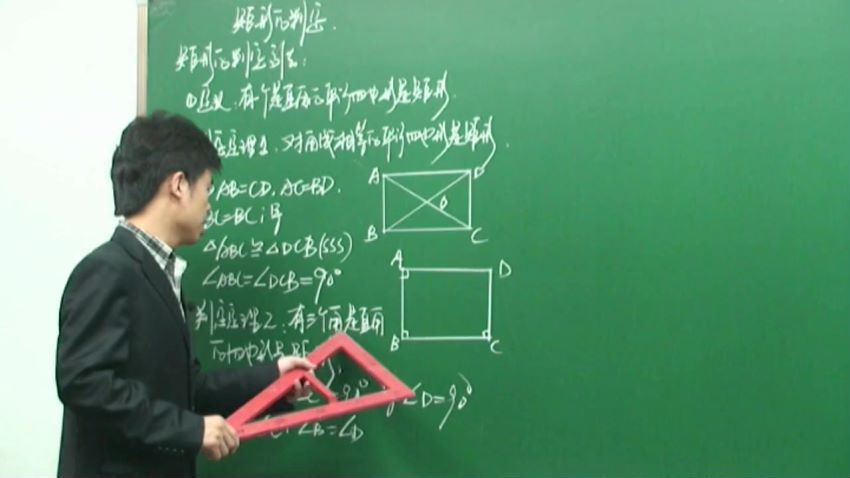 矩形的判定.
矩形的判定方法:
①定义:有个角是直角的平行四边形是矩形.
判定定理1:对角线相等的平行四边形是矩形.
AB=CD. AC=BD.
BC=BC
△ABC≅△DCB(SSS)
∠ABC=∠DCB=90°
判定定理2:有三个角是直角
的四边形是
90° ∠D=90°
∠B=∠D
A D
O
B C
A D
B C